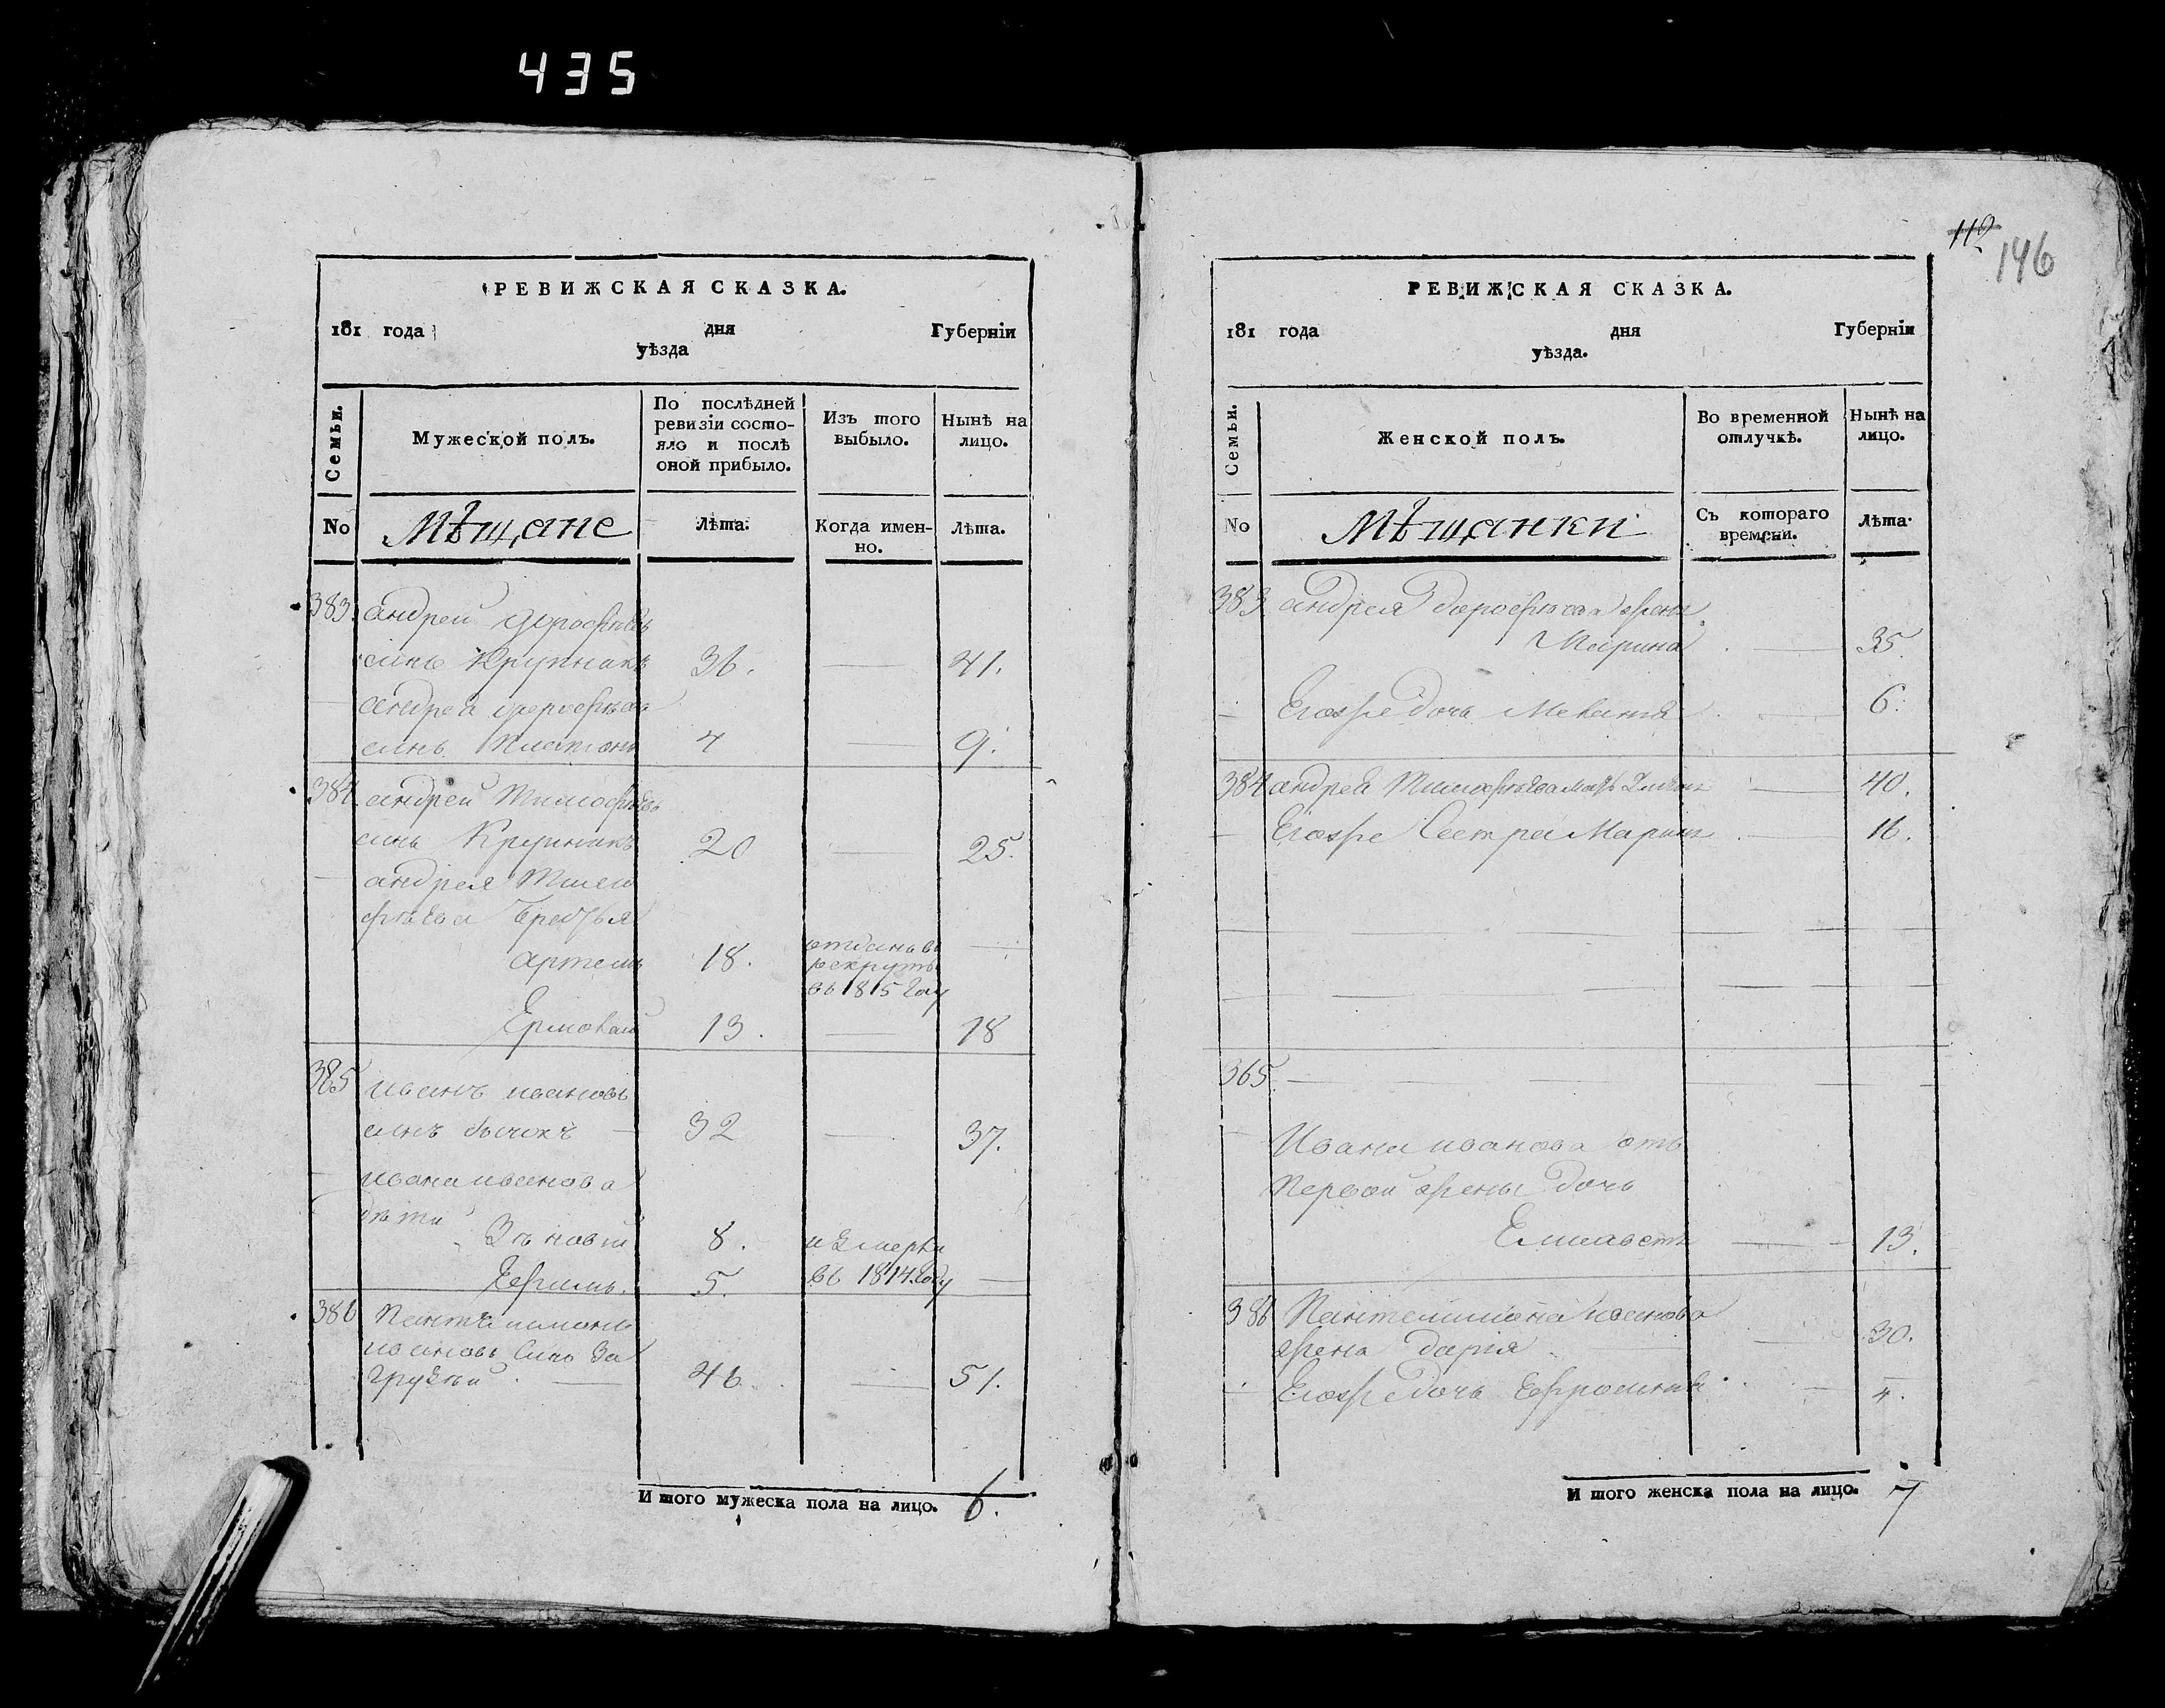 435
РЕВИЖСКАЯ СКАЗКА.
181 года дня Губерніи
уѣзда
Семьи.
Мужеской полъ.
По послѣдней ревизіи состояло и послѣ оной прибыло.
Изъ того выбыло.
Нынѣ на лицо.
No
Мѣщане
Лѣта.
Когда именно.
Лѣта.
383. андрей дорофѣевъ
синъ Крупникъ 36. 41.
андрея дорофѣева
синъ Платонъ 4 9.
384. андрей Тимофѣевъ
синъ Крупникъ 20 25.
андрея Тимо
фѣева братья
артемъ 18. отданъ въ
рекруты
въ 1815 году
Ермолай 13. 18
385 иванъ ивановъ
синъ бычокъ 32 37.
ивана иванова
дѣти
Зѣновій 8. измерли
Ефимъ. 5. въ 1814. году
386 Пантелимонъ
ивановъ синъ За
грузній 46 51.
И того мужеска пола на лицо. 6.
112
146
РЕВИЖСКАЯ СКАЗКА.
181 года дня Губерніи
уѣзда.
Семьи.
Женской полъ.
Во временной отлучкѣ.
Нынѣ на лицо.
No
Мѣщанки
Съ котораго времени.
Лѣта.
383 андрея дорофѣева жена
Марина 35.
Егоже дочь 6.
384 андрея Тимофѣева мать 40.
Егоже сестра Марина 16.
365
Ивана иванова отъ
первой жены дочь
Елисавета 13.
386 Пантелимона иванова
жена дарія 30.
Егоже дочь Ефросинія 4.
И того женска пола на лицо. 7